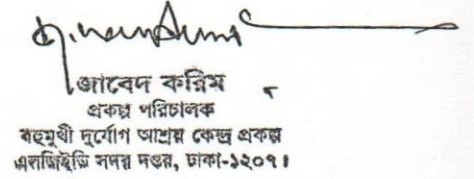 জাবেদ করিম
প্রকল্প পরিচালক
বহুমুখী দুর্যোগ আশ্রয় কেন্দ্র প্রকল্প
এলজিইডি সদর দপ্তর, ঢাকা-১২০৭।